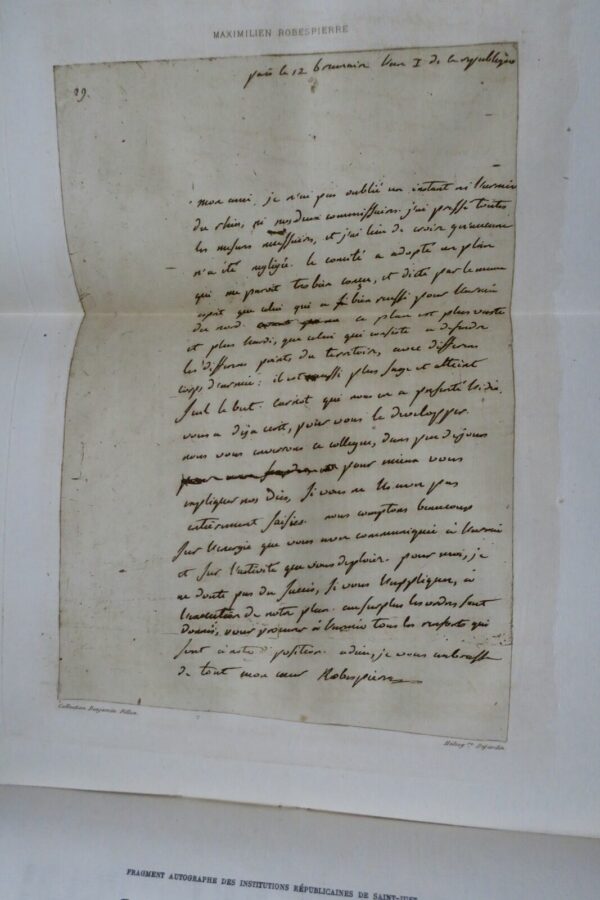 MAXIMILIEN ROBESPIERRE
29.
paris le 12 brumaire l'an I de la republique
mon ami, je n'ai pas oublié un instant ni l'armée
du rhin, ni nos deux commissaires. j'ai pressé toutes
les mesures necessaires, et j'ai lieu de croire qu'aucune
n'a été negligée. le comité a adopté un plan
qui me paroit tres bien conçu, et dicté par le meme
esprit que celui qui a si bien reussi pour l'armée
du nord. ce plan est plus vaste
et plus hardi, que celui qui consiste a defendre
les differens points du territoire, avec differens
corps d'armée: il est aussi plus sage et atteint
seul le but. Carnot qui nous en a presenté l'idée
vous a deja ecrit, pour vous le developper.
nous vous enverrons ce collegue, dans peu de jours
pour mieux vous
expliquer nos idées, si vous ne les avez pas
entierement saisies. nous comptons beaucoup
sur l'energie que vous avez communiquée à l'armée
et sur l'activité que vous deploiez. pour moi, je
ne doute pas du succès, si vous l'appliquez, à
l'execution de notre plan. au surplus les ordres sont
donnés, pour procurer à l'armée tous les renforts qui
sont à notre disposition. adieu, je vous embrasse
de tout mon cœur Robespierre
Collection Benjamin Fillon.
Héliog.re Dujardin
FRAGMENT AUTOGRAPHE DES INSTITUTIONS RÉPUBLICAINES DE SAINT-JUST